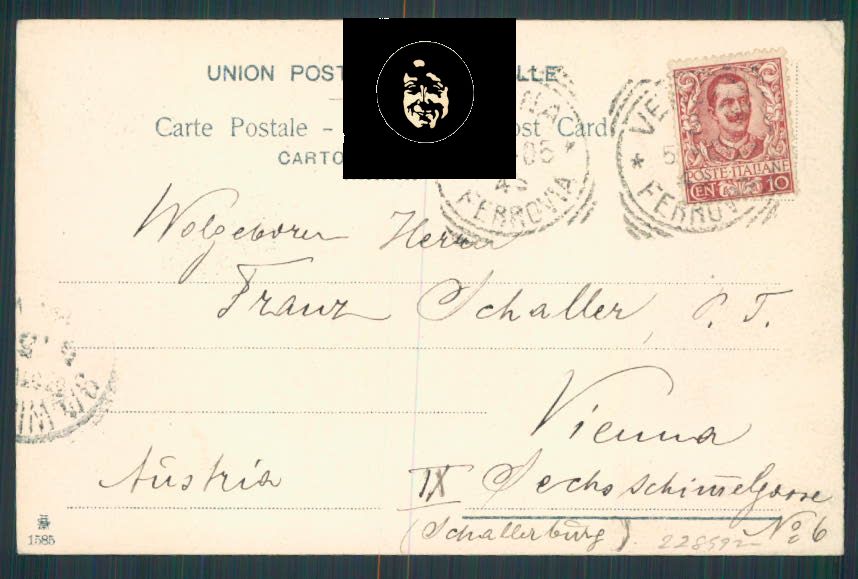 UNION POST LLE
Carte Postale - ost Card
CARTO
VE
05
5
45
FERROVIA
FERROVIA
POSTE·ITALIANE
CEN 10
Wolgeborer Herrn
Franz Schaller, P. T.
Vienna
Austria IX Sechsschimelgasse
(Schallerburg) No 6
228592
1585